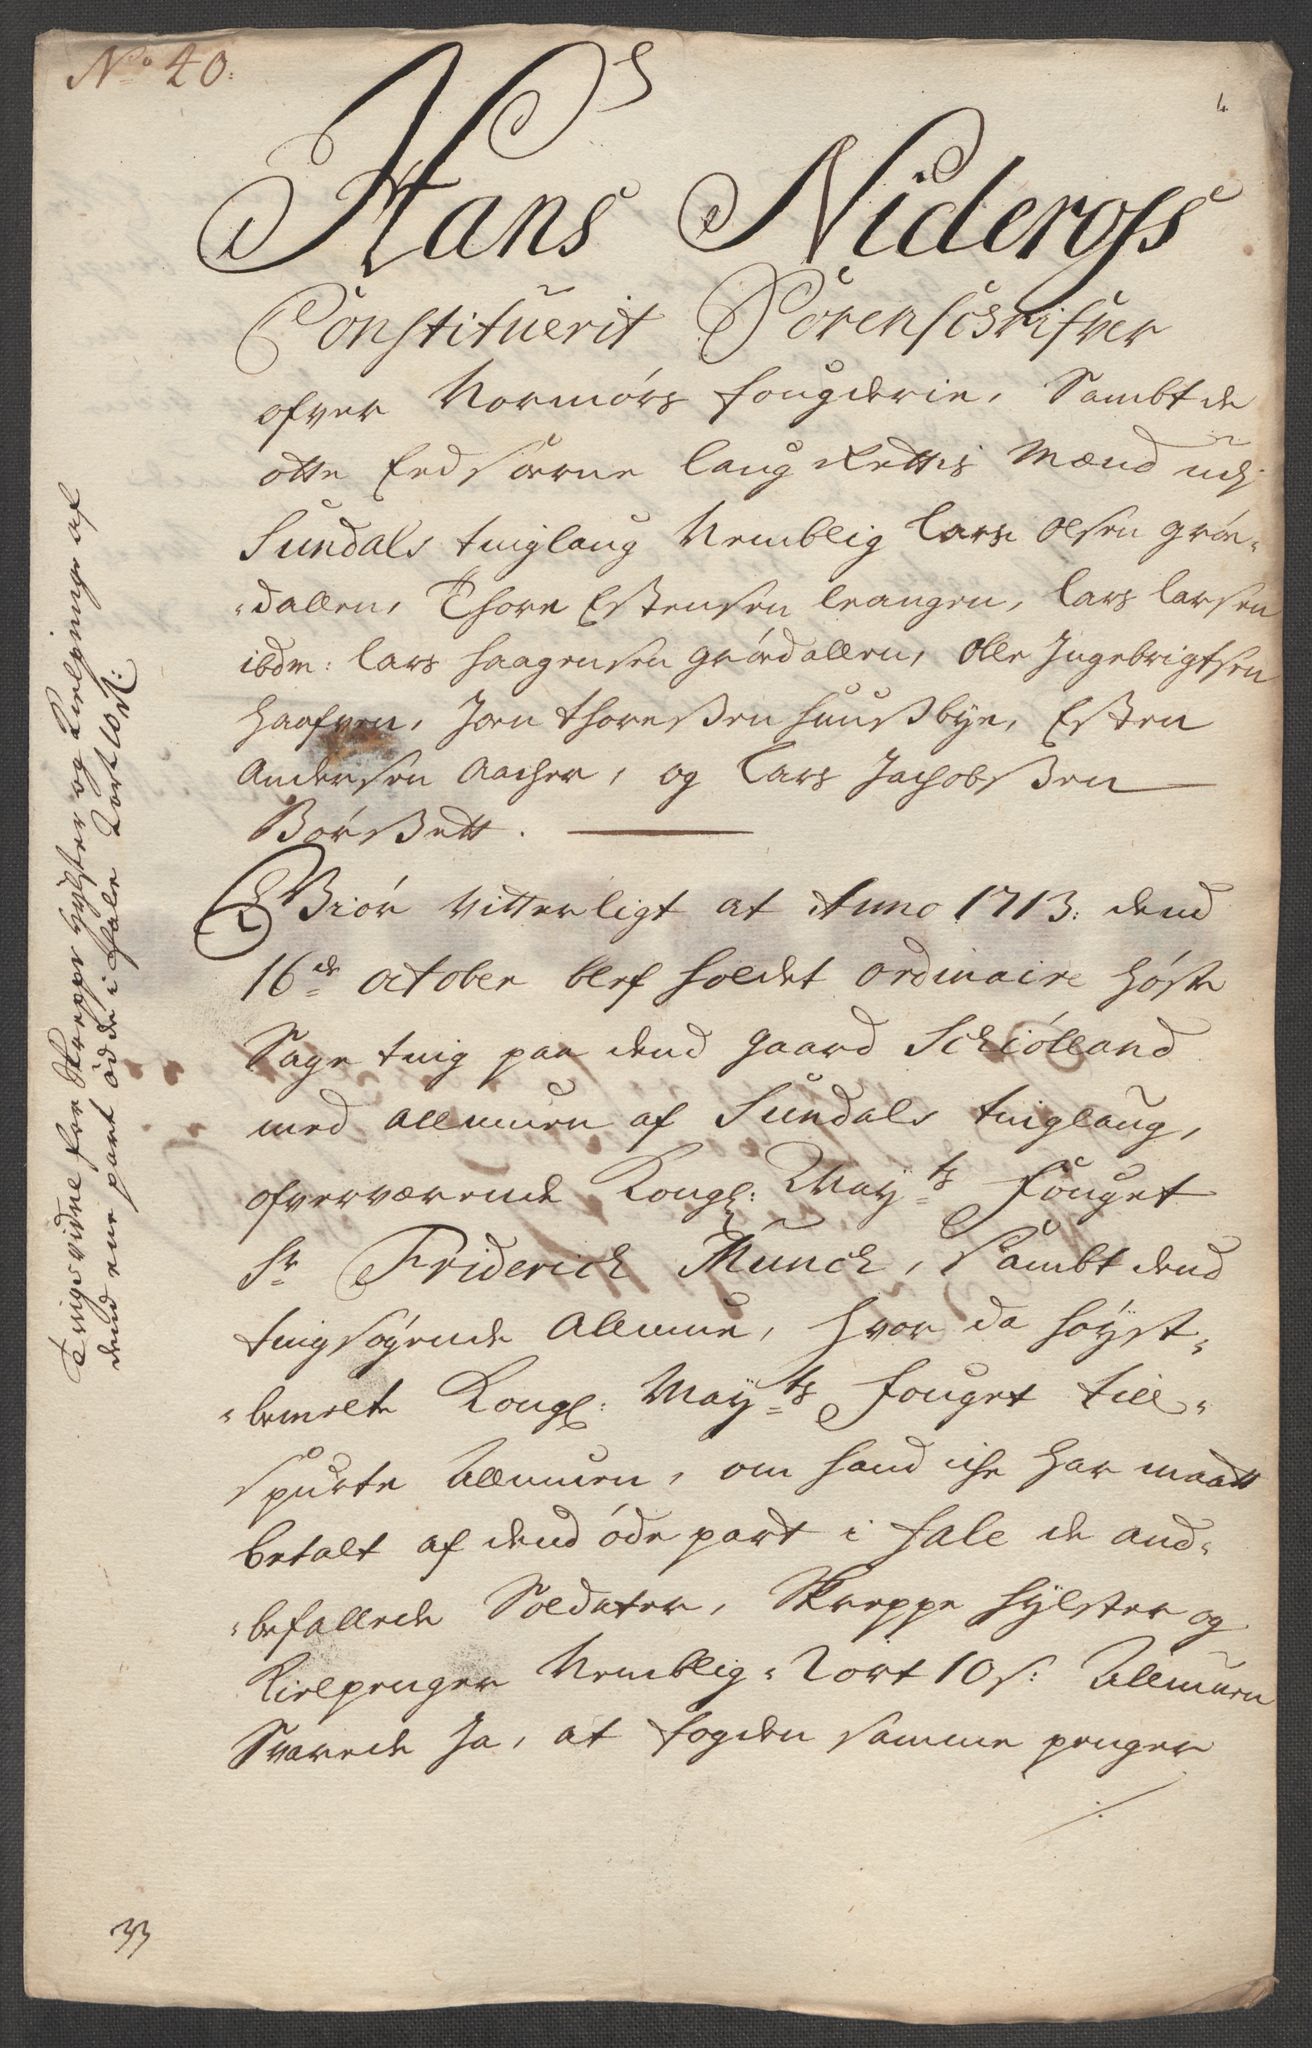 No 40:
Hans Nideross
Constituerit Sorenschrifver
ofver Normørs fougderie, Sambt de
otte Eedsorne laug Rettis Mænd udj
Sundals tinglaug Nemblig Lars Olsen grøe-
-dallen, Thore Estensen leangen, Lars Larsen
ibdm: Lars Haagensen grødallen, Olle Ingebrigtsen
Haafven, Joen Thoreßen Huußbye, Esten
Andersen Aacher, og Lars Jachobßen
Børßett.
Giør Vitterligt at Anno 1713: dend
16de october blef holdet ordinaire Høste
Sage ting paa dend gaard Schiølland
med allmuen af Sundals tinglaug,
ofverværende Kongl: Mayts fouget
Sr Friderich Munch, Sambt dend
tingsøgende allmue, hvor da høyst-
-bemelte Kongl: Mayts fouget till-
spurte Allmuen, om hand iche har maatt
betalt af dend øde part i fale de and-
-befallede Soldater, Skreppe Hylster og
Kielpenger Nemblig 2 ort 10 s: Allmuen
Svarede Ja, at fogden samme penger
./.
33
Tingsvidne for Skreppe Hylster og Kielpenge af
dend ene part øde i Fale 2 ort 10 s: